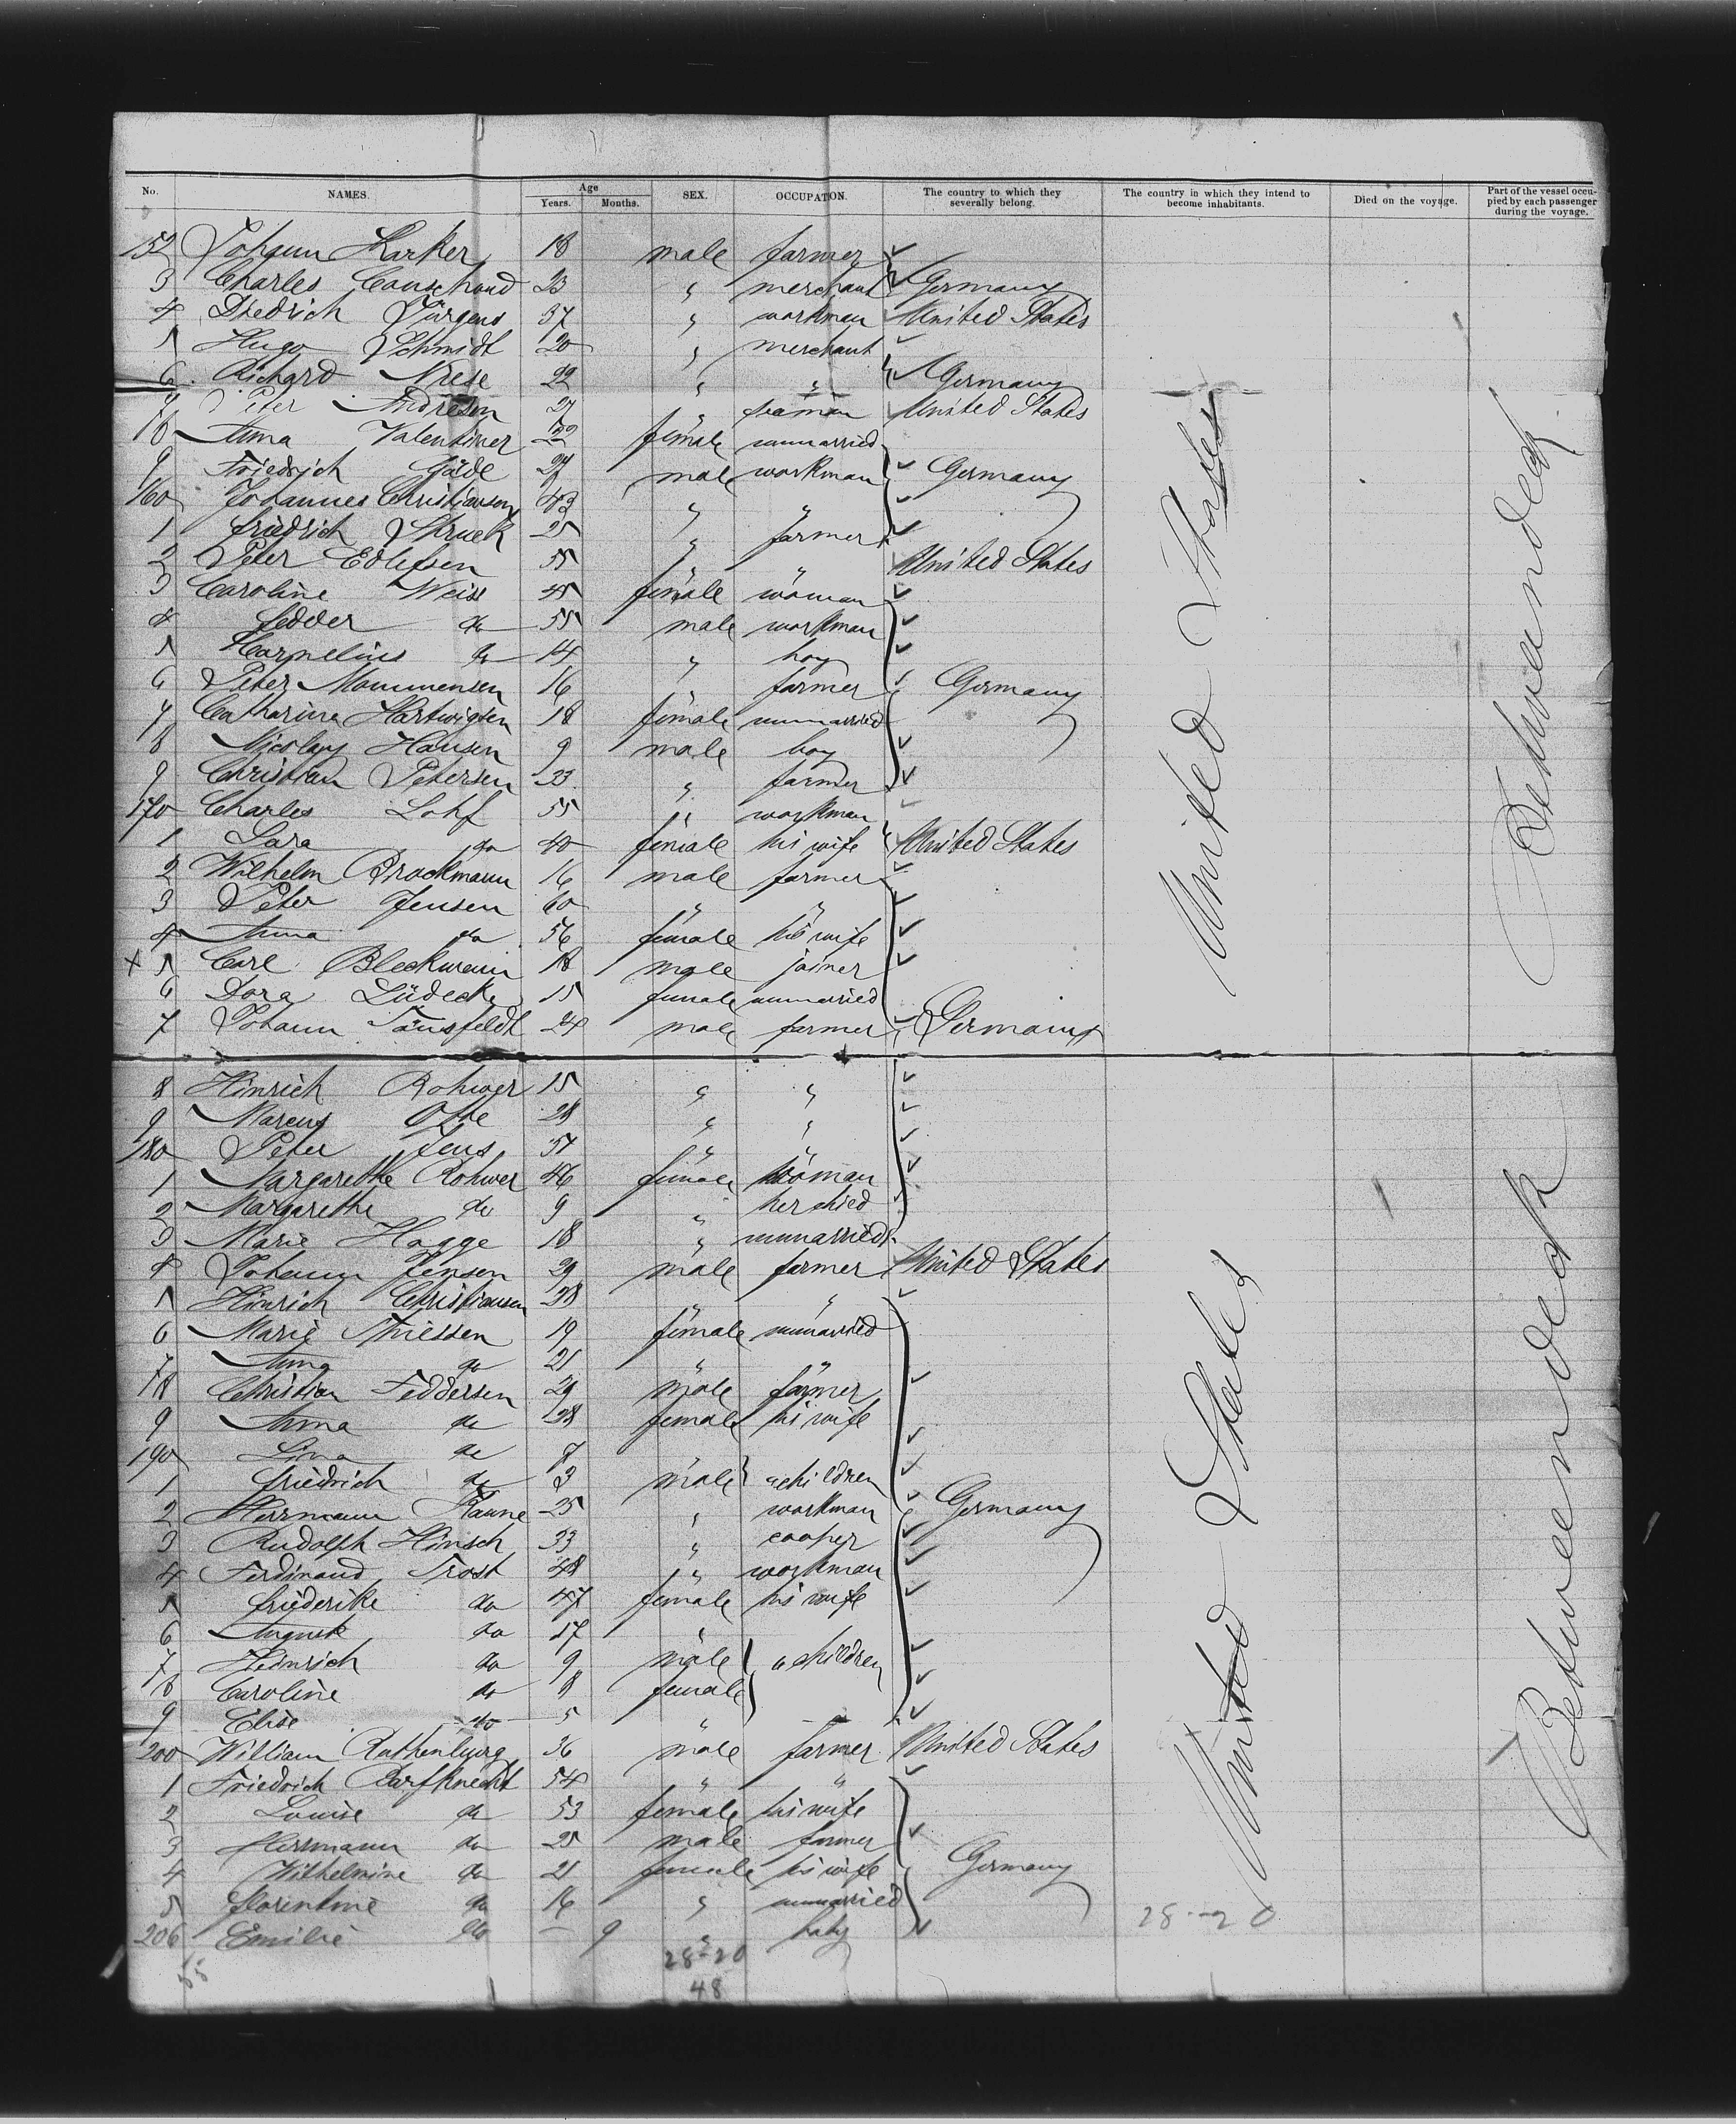 No. NAMES. Age Years. Months. SEX. OCCUPATION. The country to which they severally belong. The country in which they intend to become inhabitants. Died on the voyage. Part of the vessel occupied by each passenger during the voyage.
152 Johann Harker 18 male farmer
3 Charles 23 " merchant Germany
4 Diedrich Jürgens 37 " workman United States
5 Hugo Schmidt 20 " merchant
6 Richard Niese 22 " " Germany
7 Peter Andresen 27 " seaman United States
8 Anna Valentiner 22 female unmarried
9 Friedrich Gäde 27 male workman Germany
160 Johannes Christiansen 43 " "
1 friedrich Struck 25 " farmer
2 Peter Edlefsen 55 " " United States
3 Caroline Weiss 45 female woman
4 fedder do 55 male workman
5 Cornelius do 14 " boy
6 Peter Mommensen 16 " farmer Germany
7 Catharine Hartwigsen 18 female unmarried
8 Nicolay Hansen 9 male boy
9 Christian Petersen 33 " farmer
170 Charles Lohf 55 " workman
1 Sara do 40 female his wife United States
2 Wilhelm Brockmann 16 male farmer
3 Peter Jensen 60 " "
4 Anna do 56 female his wife
x 5 Carl Bleckmann 18 male joiner
6 Dora Lüdecke 15 female unmarried
7 Johann Tönsfeldt 24 male farmer Germany
8 Hinrich Rohwer 15 " "
9 Marcus Otte 28 " "
180 Peter Jens 37 " "
1 Margarethe Rohwer 46 female woman
2 Margarethe do 9 " her child
3 Marie Hagge 18 " unmarried
4 Johann Jensen 29 male farmer United States
5 Hinrich Christiansen 28 " "
6 Marie Thiessen 19 female unmarried
7 Anna do 21 " "
8 Christian Feddersen 29 male farmer
9 Anna do 28 female his wife
190 Lina do 7
1 friedrich do 3 male children
2 Herrmann 25 " workman Germany
3 Rudolph Hinsch 33 " cooper
4 Ferdinand Trost 48 " workman
5 friederike do 47 female his wife
6 August do 17 "
7 Heinrich do 9 male children
8 Caroline do 8 female
9 Elise do 5 "
200 William Rathenburg 36 male farmer United States
1 Friedrich Darfknecht 54 " "
2 Louise do 53 female his wife
3 Herrmann do 25 male farmer
4 Wilhelmine do 21 female his wife Germany
5 florentine do 16 " unmarried
206 Emilie do — 9 " baby
United States
United States
Between deck
Between deck
55
28-20
48
28-20